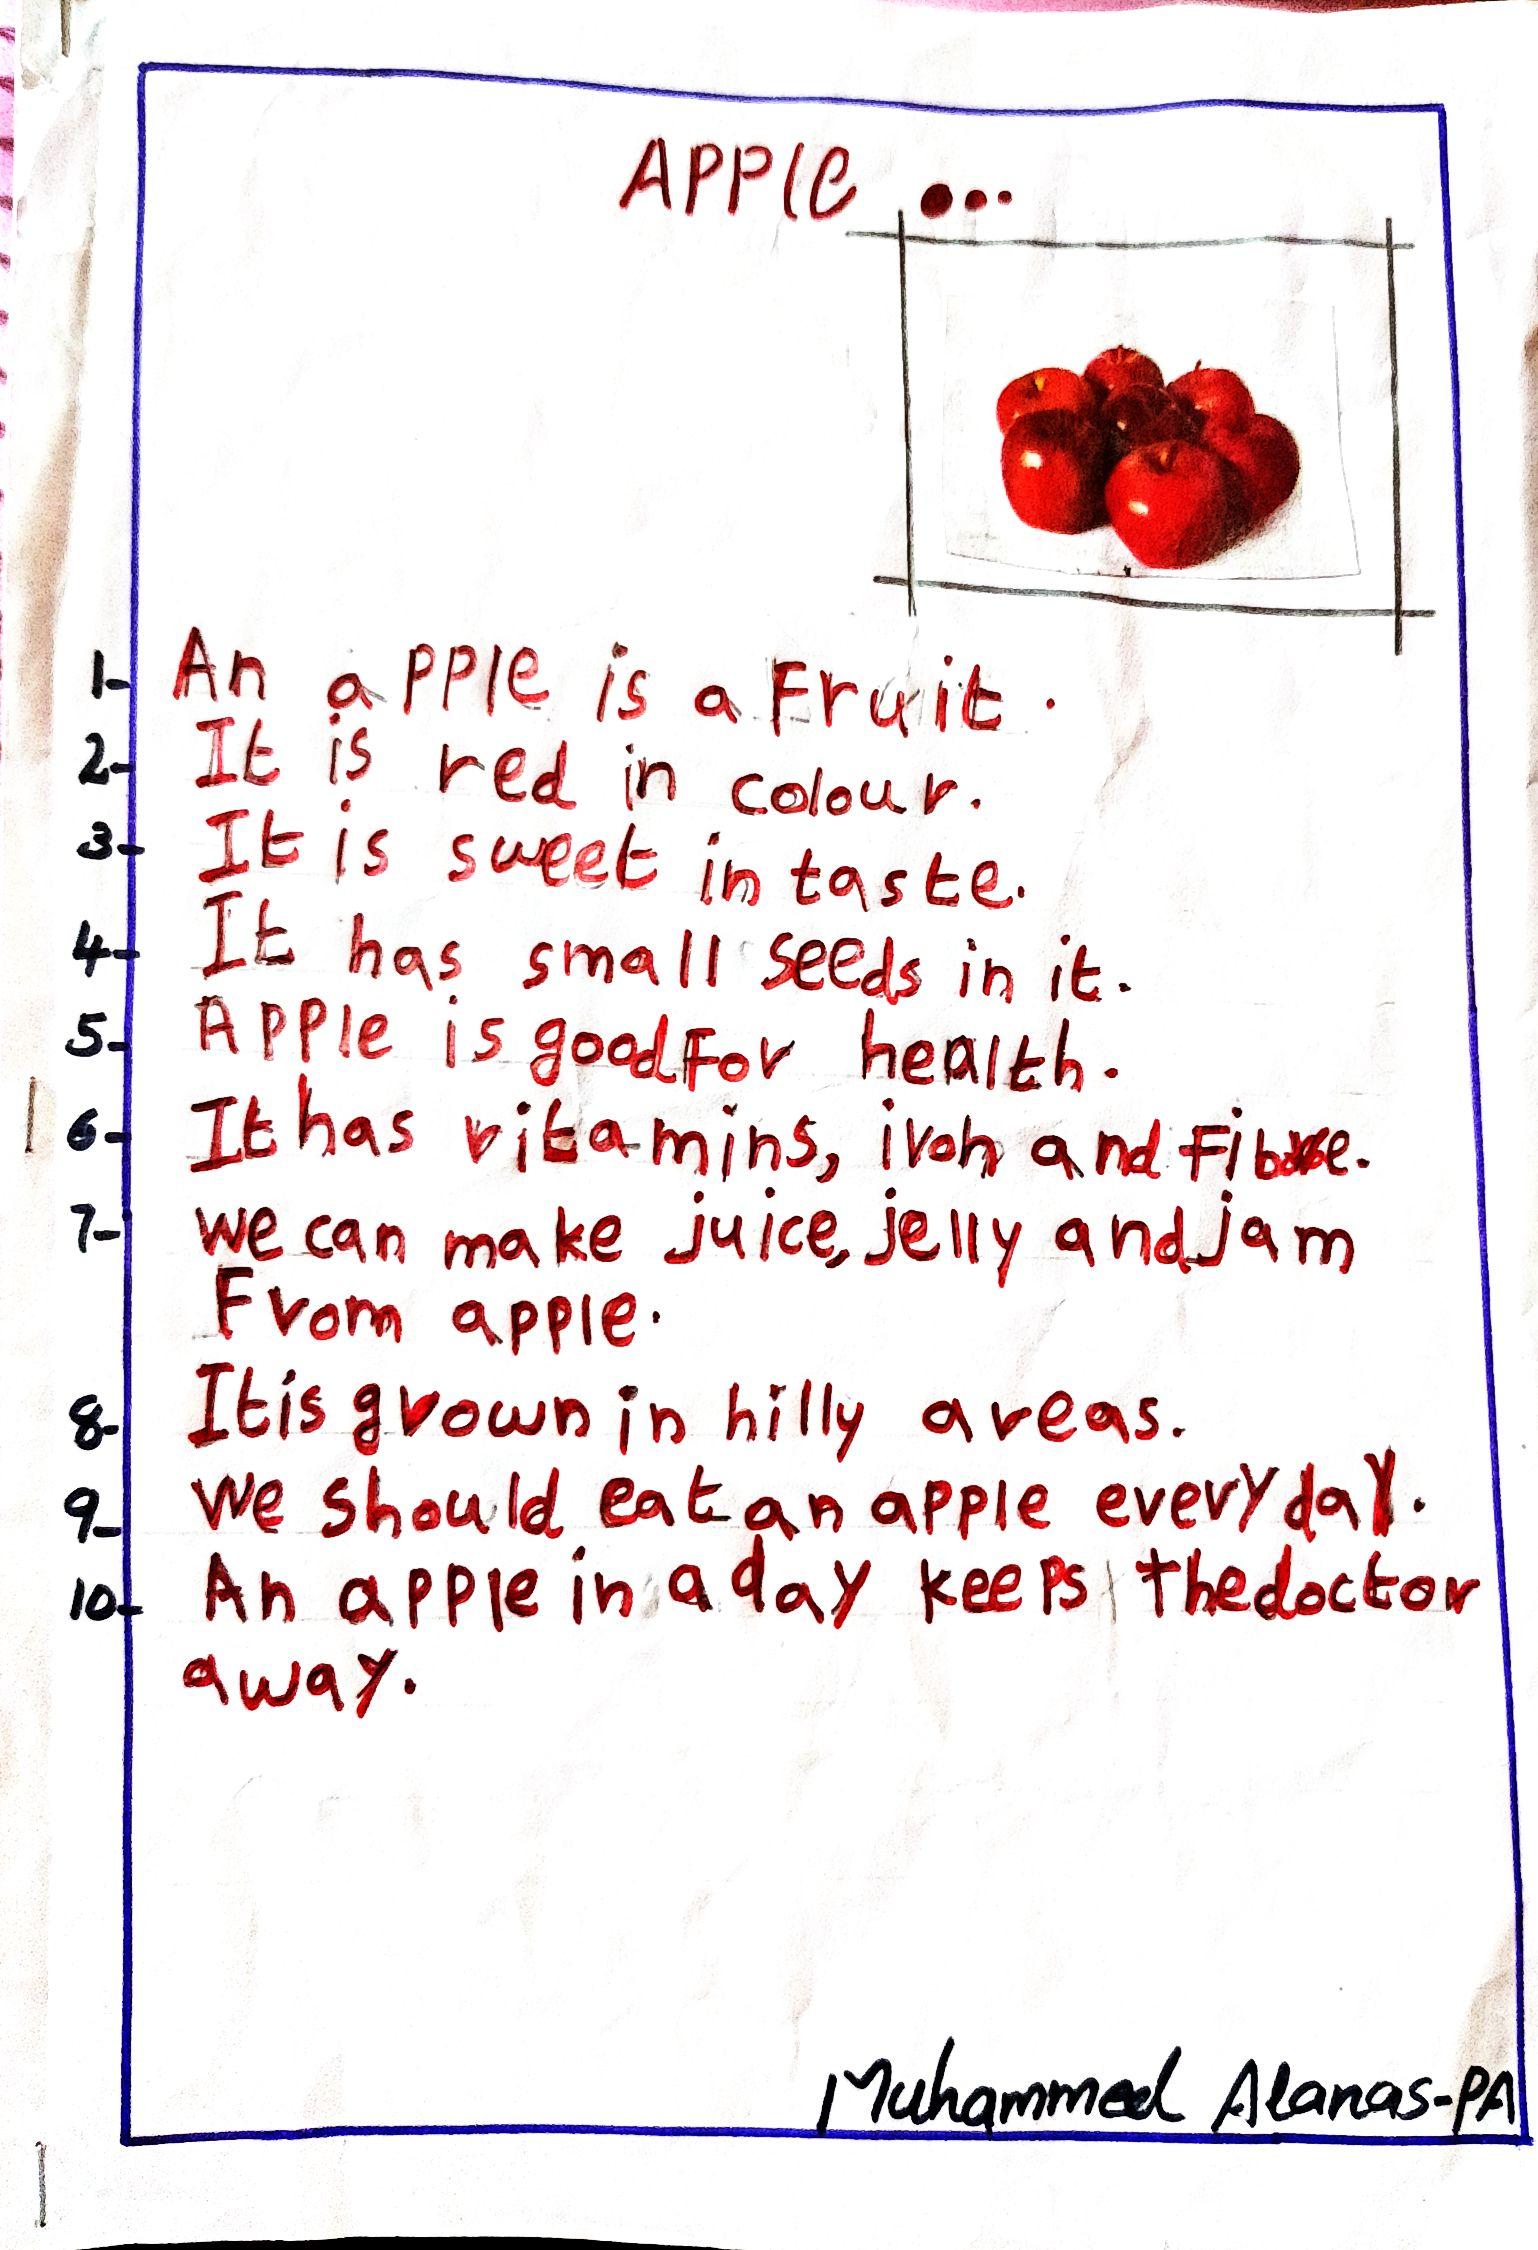 APPle ...
1- An aPPle is a Fruit.
2- It is red in colour.
3- It is sweet in taste.
4- It has small seeds in it.
5- APPle is good For health.
6- It has vitamins, iron and Fibre.
7- we can make juice, jelly and jam
From apple.
8- It is grown in hilly areas.
9- We should eat an apple every day.
10- An apple in a day keeps the doctor
away.
Muhammed Alanas-PA